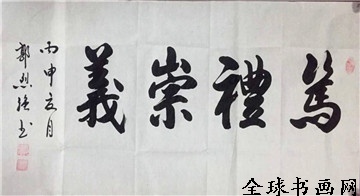 篤禮崇義
丙申亥月
郭烈雄书
全球书画网